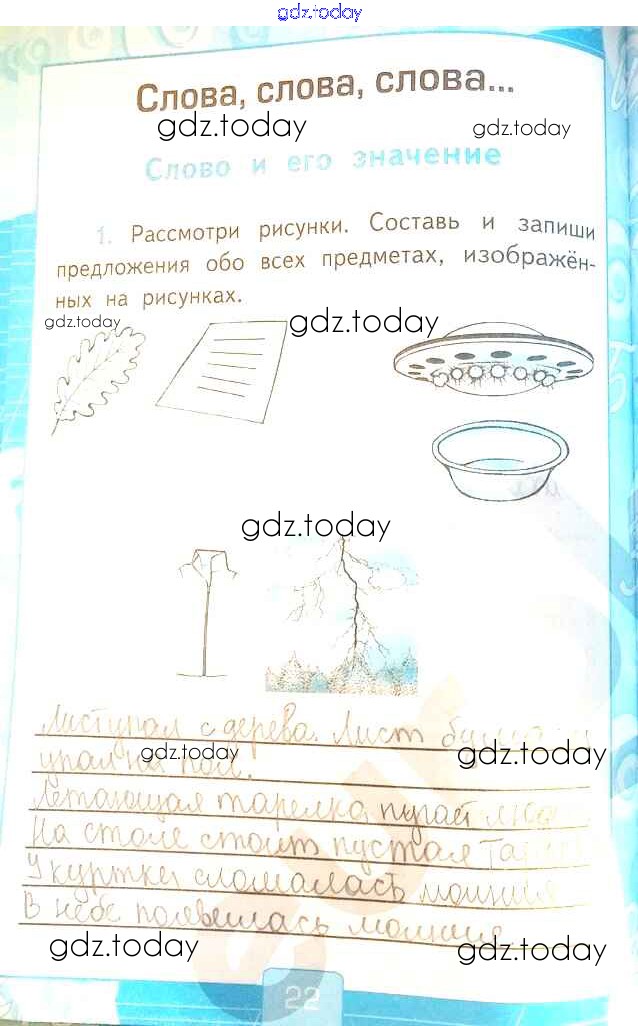 gdz.today
Слова, слова, слова...
gdz.today
gdz.today
Слово и его значение
1. Рассмотри рисунки. Составь и запиши
предложения обо всех предметах, изображён-
ных на рисунках.
gdz.today
gdz.today
gdz.today
Лист упал с дерева. Лист бумаги
упал на пол.
gdz.today
gdz.today
Летающая тарелка пугает
На столе стоит пустая
У куртки сломалась молния
В небе появилась молния.
gdz.today
gdz.today
22